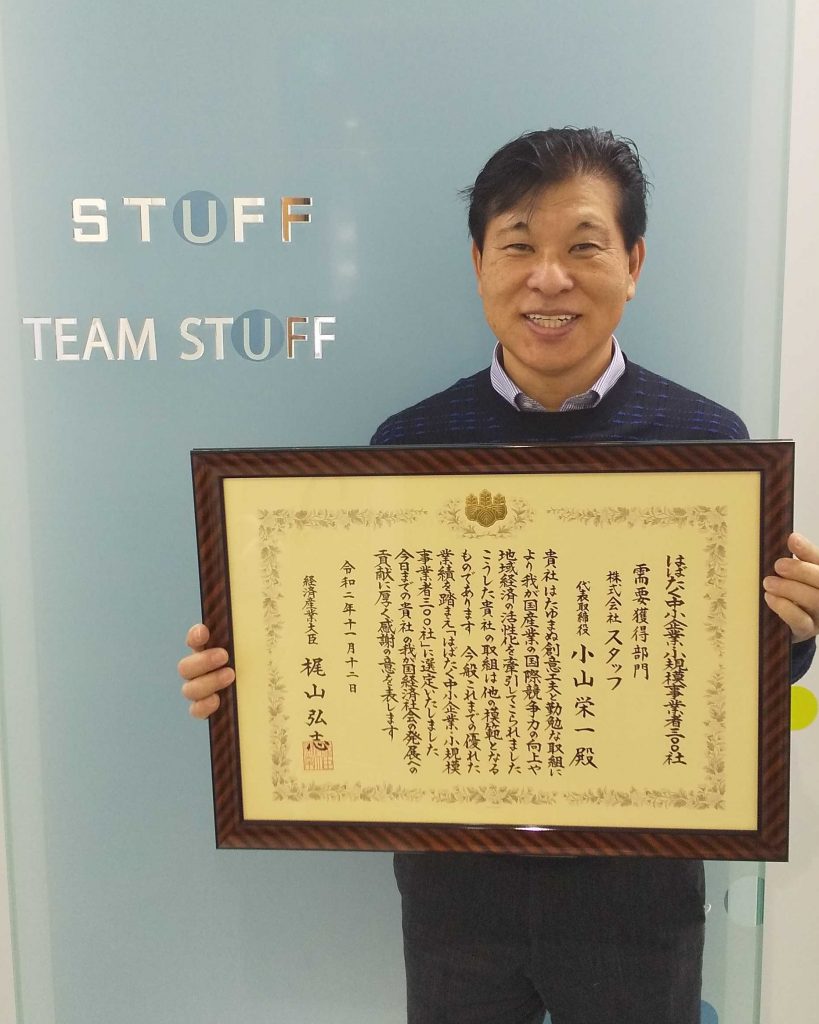 STUFF
TEAM STUFF
はばたく中小企業・小規模事業者三〇〇社
需要獲得部門
株式会社 スタッフ
代表取締役 小山栄一殿
貴社はたゆまぬ創意工夫と勤勉な取組に
より我が国産業の国際競争力の向上や
地域経済の活性化を牽引してこられました
こうした貴社の取組は他の模範となる
ものであります 今般これまでの優れた
業績を踏まえ「はばたく中小企業・小規模
事業者三〇〇社」に選定いたしました
今日までの貴社の我が国経済社会の発展への
貢献に厚く感謝の意を表します
令和二年十一月十二日
経済産業大臣 梶山弘志